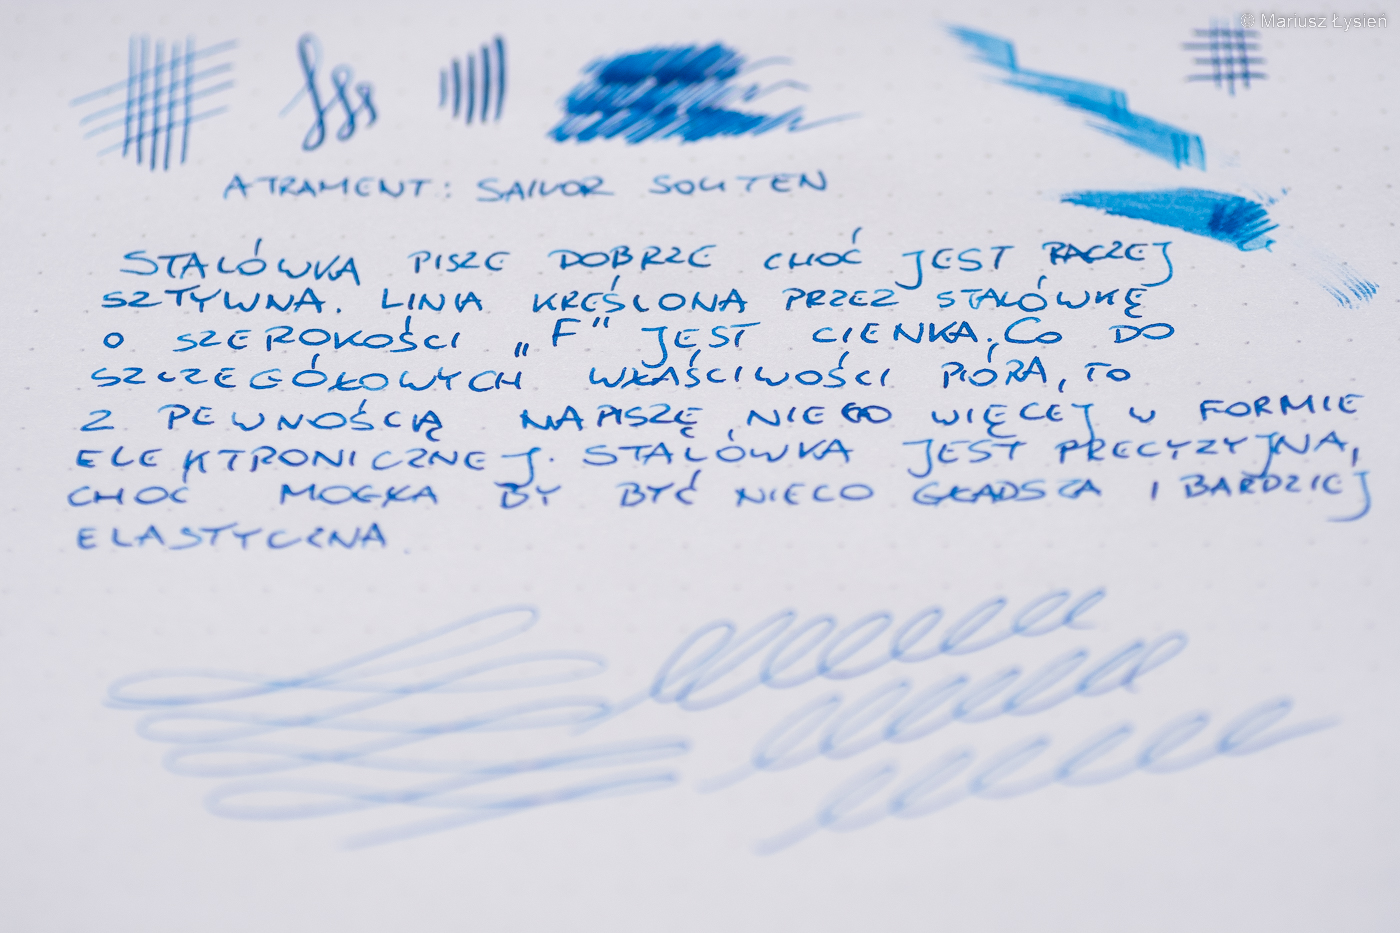 © Mariusz Łysień
ATRAMENT: SAILOR SOUTEN
STALÓWKA PISZE DOBRZE CHOĆ JEST RACZEJ
SZTYWNA. LINIA KREŚLONA PRZEZ STALÓWKĘ
O SZEROKOŚCI „F" JEST CIENKA. CO DO
SZCZEGÓŁOWYCH WŁAŚCIWOŚCI PIÓRA, TO
Z PEWNOŚCIĄ NAPISZĘ NIECO WIĘCEJ W FORMIE
ELEKTRONICZNEJ. STALÓWKA JEST PRECYZYJNA,
CHOĆ MOGŁA BY BYĆ NIECO GŁADSZA I BARDZIEJ
ELASTYCZNA.